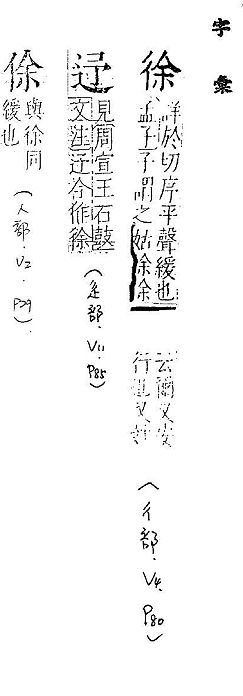 字彙
徐
詳於切序平聲緩也
孟子子謂之姑徐徐
云爾又安
行也又姓
(彳部.V4.P80)
見周宣王石鼓
文註今作徐
(辵部.V11.P85)
俆
與徐同
緩也
(人部.V2.P29).